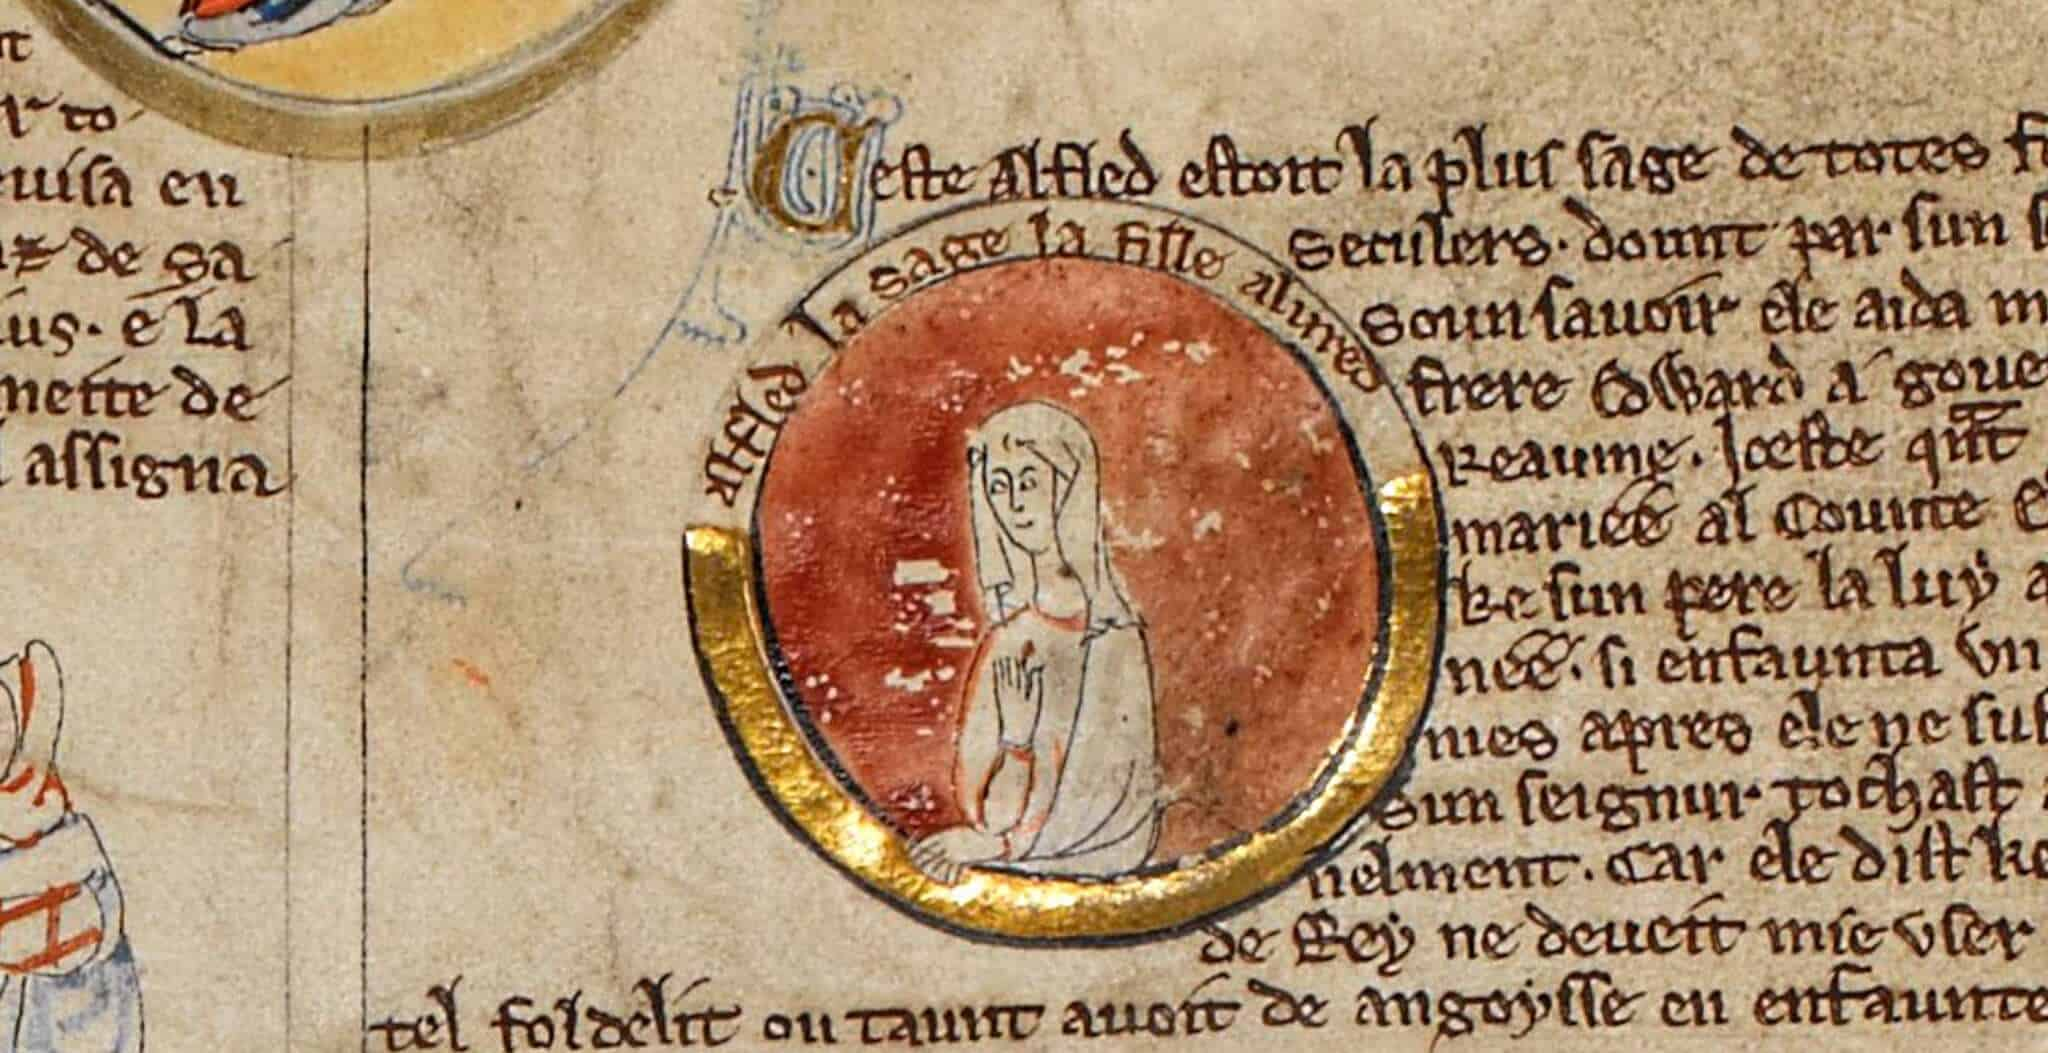 r to
euisa en
de sa
ius. e la
mette de
assigna
Ceste Alfled estoit la plus sage de totes
Seculers. dount par sun
Soun sauoir ele aida
frere Edward a goue
Reaume. Iceste qnt
mariee al Counte
ke sun pere la luy a
nee. si enfaunta vn
mes apres ele ne suf
Sun seignur tochast
nelment. Car ele dist ke
de Rey ne deueit mie vser
tel fol delit ou taunt auoit de angoysse en enfaunte
Alfled la sage la fille alured